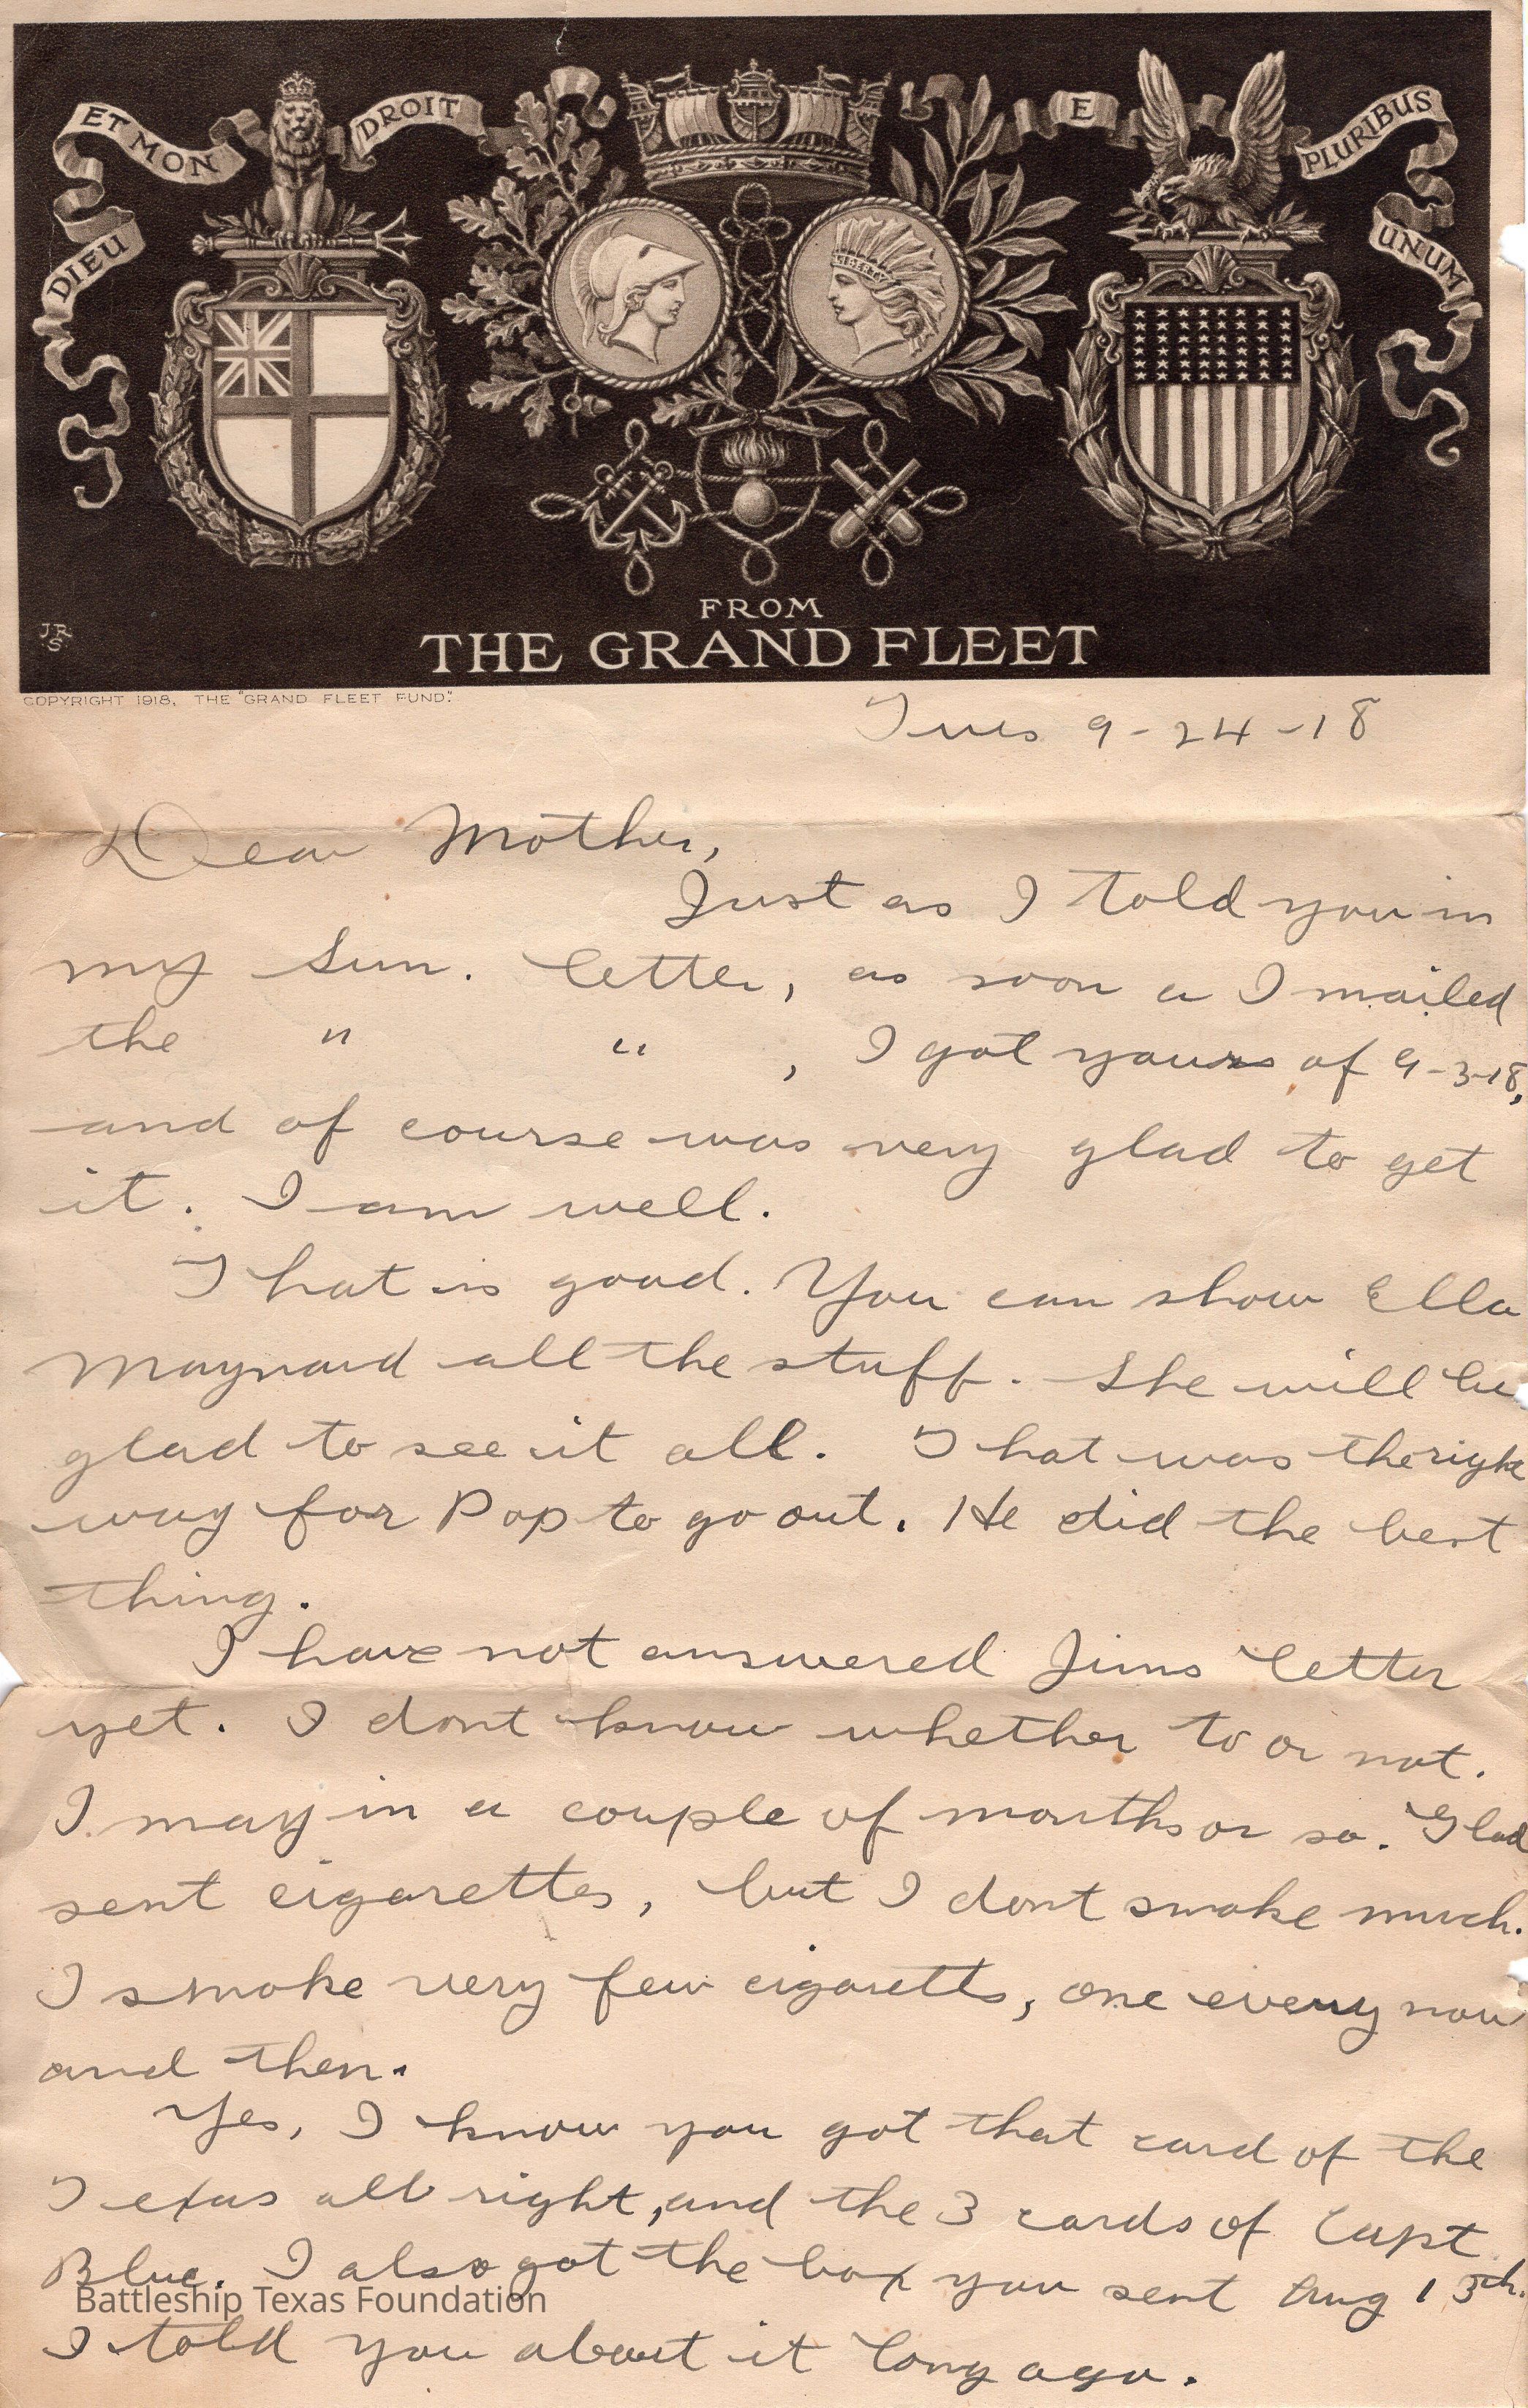 DIEU ET MON DROIT
E PLURIBUS UNUM
LIBERTY
JRS
FROM
THE GRAND FLEET
COPYRIGHT 1918, THE "GRAND FLEET FUND".
Tues 9-24-18
Dear Mother,
Just as I told you in
my Sun. letter, as soon a I mailed
the " " , I got yours of 9-3-18,
and of course was very glad to get
it. I am well.
That is good. You can show Ella
Maynard all the stuff. She will be
glad to see it all. That was the right
way for Pop to go out. He did the best
thing.
I have not answered Jims letter
yet. I dont know whether to or not.
I may in a couple of months or so. Glad
sent cigarettes, but I dont smoke much.
I smoke very few cigaretts, one every now
and then.
Yes, I know you got that card of the
Texas all right, and the 3 cards of Capt
Blue. I also got the box you sent Aug 13th.
Battleship Texas Foundation
I told you about it long ago.